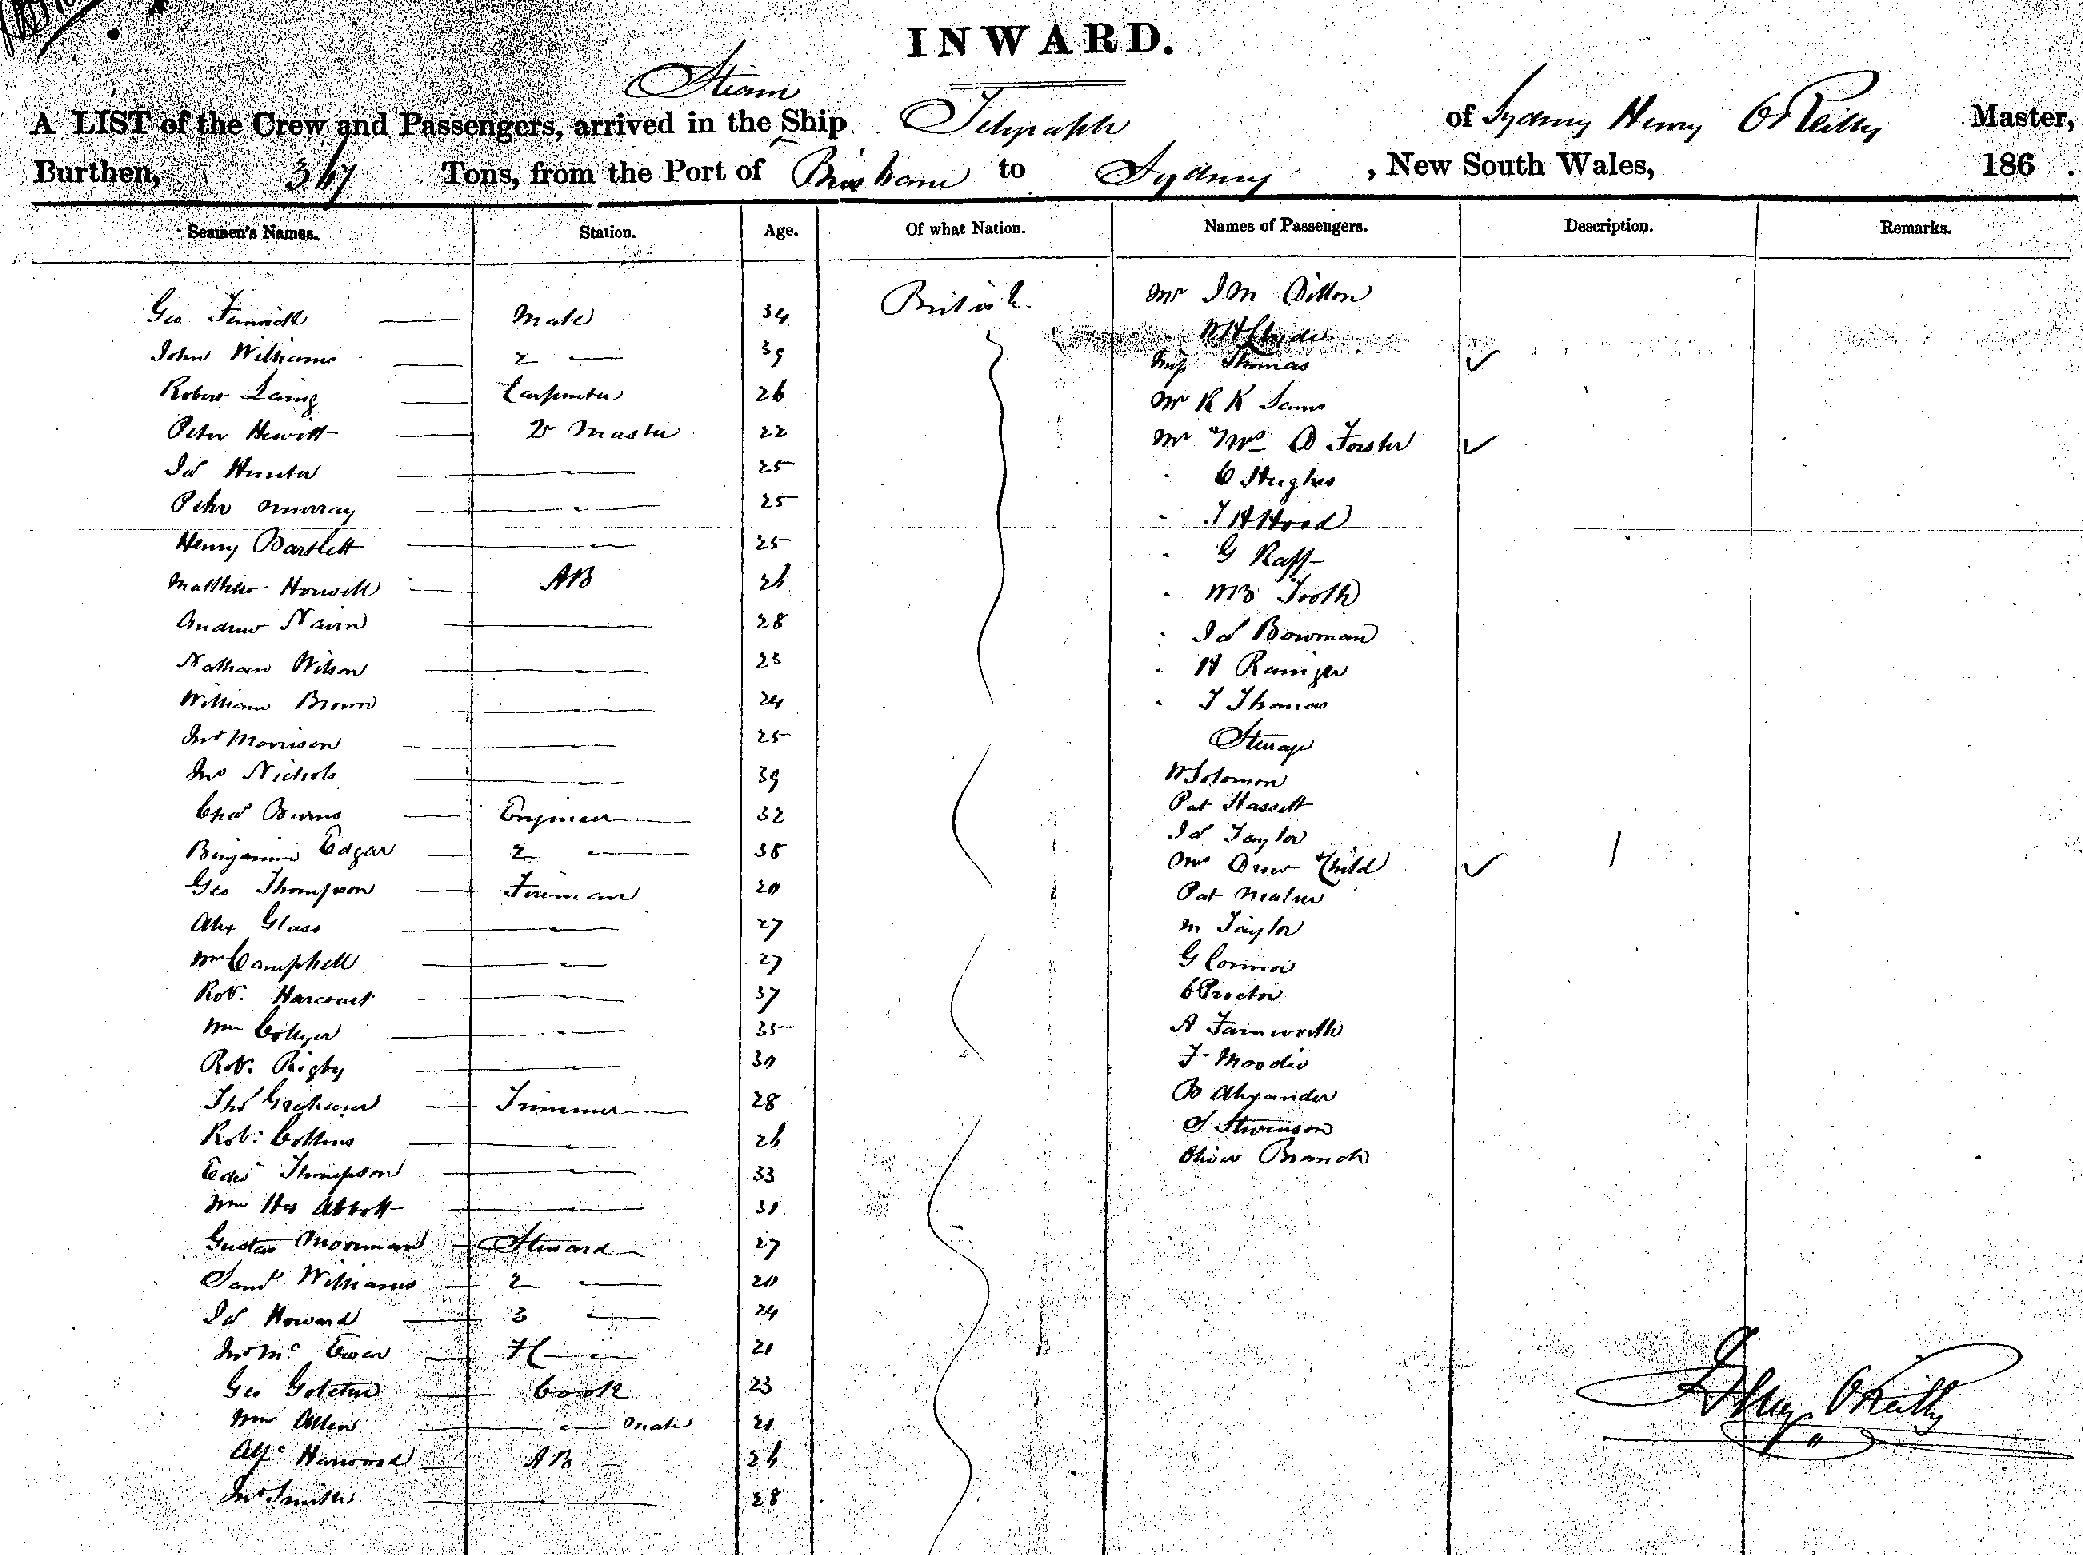 INWARD.
Steam
A LIST of the Crew and Passengers, arrived in the Ship Telegraph of Sydney Henry O'Reilly Master,
Burthen, 367 Tons, from the Port of Brisbane to Sydney, New South Wales, 186 .
Seamen's Names. Station. Age. Of what Nation. Names of Passengers. Description. Remarks.
Geo Fenwick Mate 34 British Mr J M Dillon
John Williams 2 — 39 W H Clyde
Miss Thomas
Robert Laing Carpenter 26 Mr R K Sams
Peter Hewitt Qr Master 22 Mr Mrs D Forster
Jas Hunter — 25 C Hughes
Peter Murray — 25 T H Hood
Henry Bartlett — 25 G Raff
Matthew Horwell AB 26 W B Tooth
Andrew Nairn — 28 Jas Bowman
Nathan Wilson — 23 H Raniger
William Brown — 24 T Thomas
Jno Morrison — 25 Steerage
Jno Nichols — 39 W Solomon
Pat Hassett
Chas Burns Engineer 32 Jas Taylor
Benjamin Edgar 2 — 38 Mrs Drew Child 1
Geo Thompson Fireman 20 Pat
Alex Glass — 27 M Taylor
Wm Campbell — 27 G Connor
Robt Harcourt — 37 C Proctor
Wm Collyer — 35 A Farnworth
Robt Rigby — 30 F Moodie
Thos Trimmer 28 B Alexander
Robt Collins — 26 S Stevenson
Edwd Thompson — 33 Oliver Branch
Wm Hy Abbott — 31
Gustav Moorman Steward 27
Saml Williams 2 — 20
Jas Howard 3 — 24
Jno Mc Ewen — 21
Geo Cook 23
Wm Allen — Mate 21
Alfd Harwood AB 26
Jno Smith — 28
Henry O'Reilly